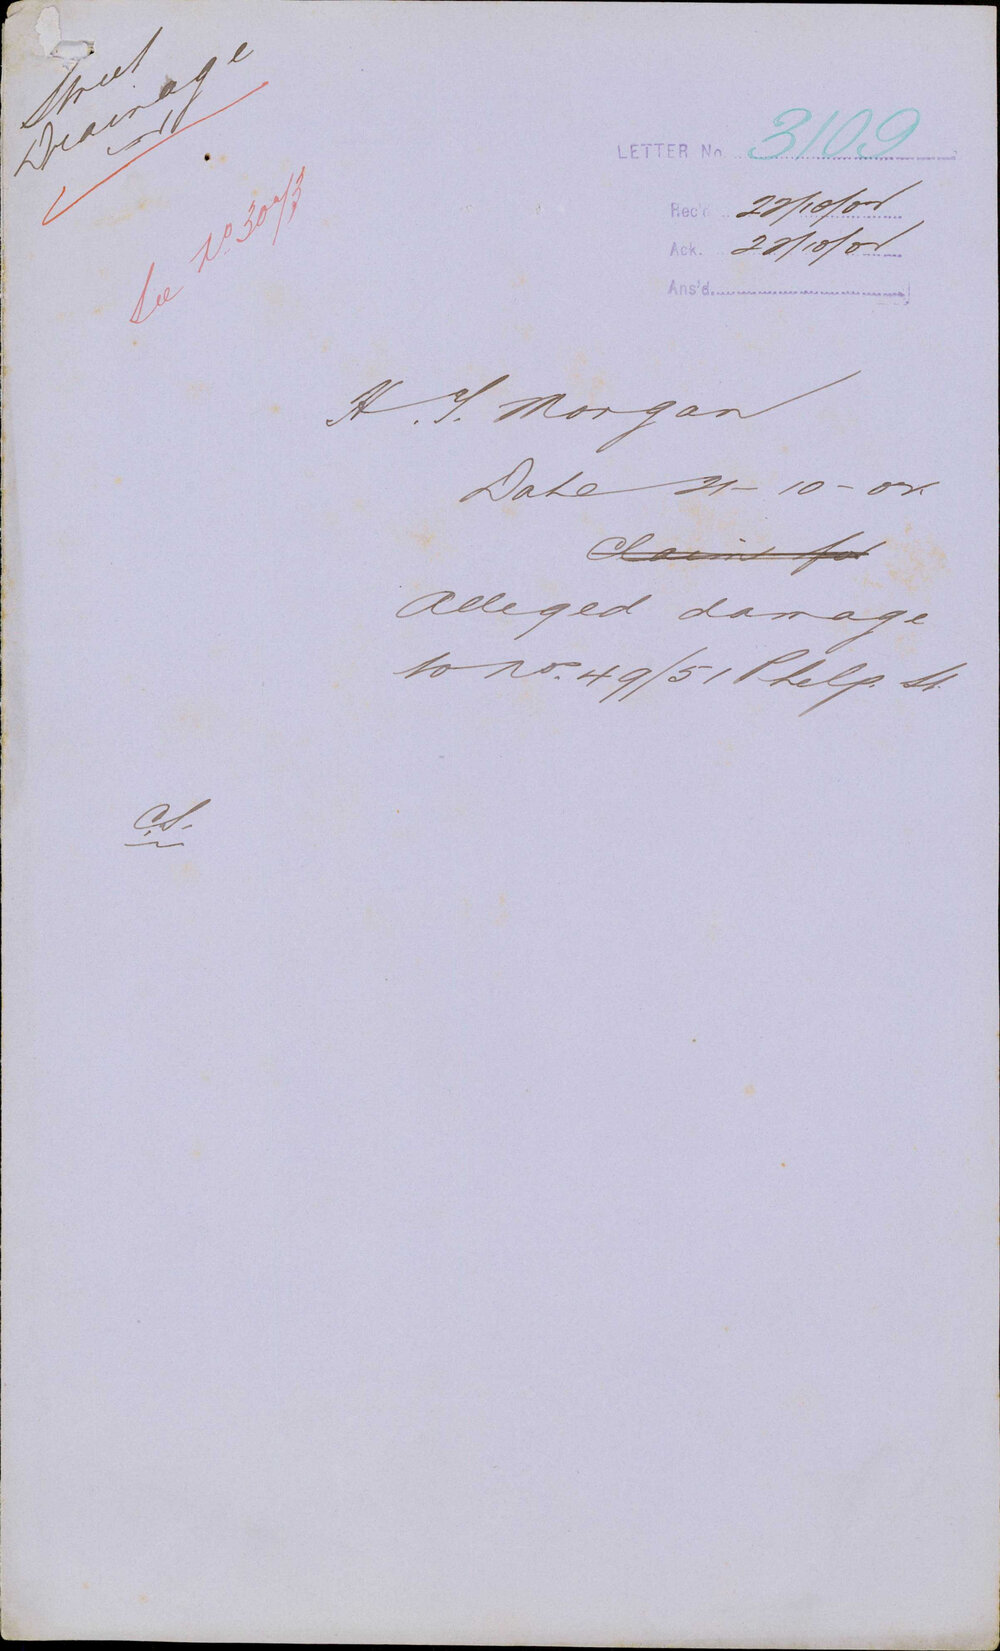 Street
Drainage
LETTER No. 3109
See No
Rec'd 22/10/02
Ack. 22/10/02
Ans'd.
H. S. Morgan
Date 21-10-02
Claim for
Alleged damage
to Nos. 49/51 Phelp. St.
C.S.